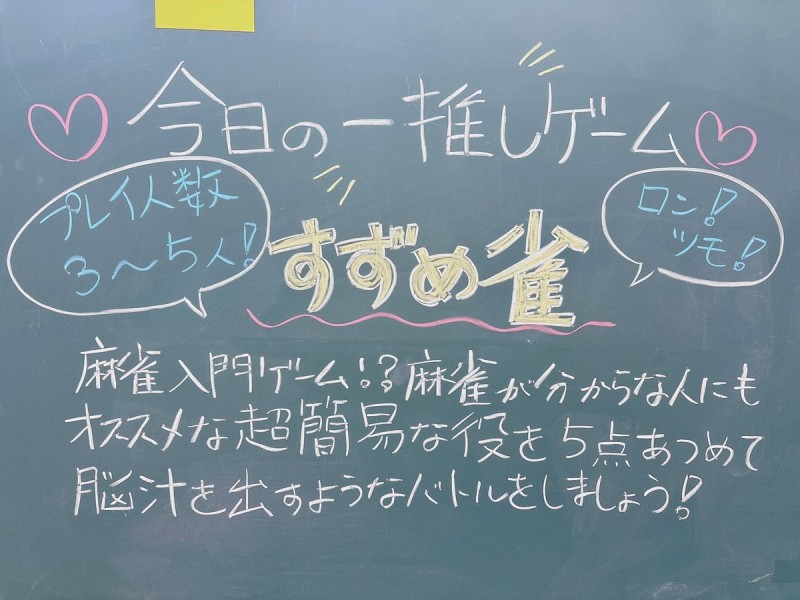 今日の一推しゲーム
プレイ人数
3～5人!
ロン!
ツモ!
すずめ雀
麻雀入門ゲーム!?麻雀が分からな人にも
オススメな超簡易な役を5点あつめて
脳汁を出すようなバトルをしましょう!